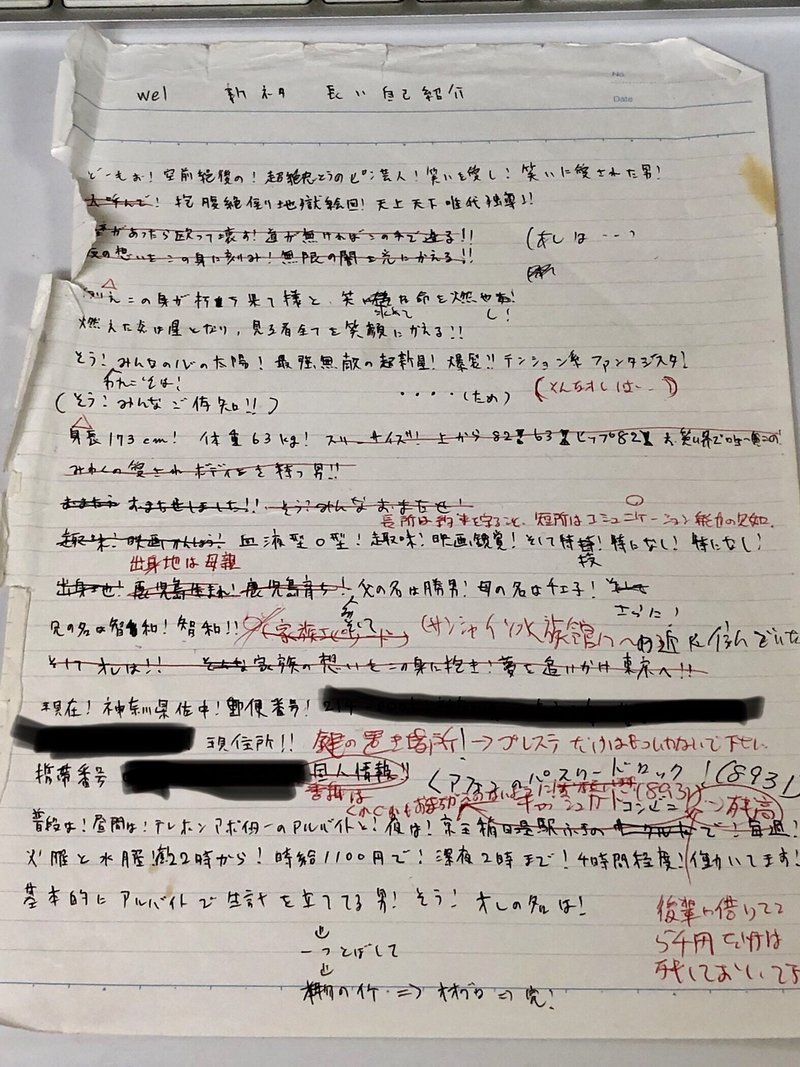 No.
Date
wel 新ネタ 長い自己紹介
どーもぉ！空前絶後の！超絶怒とうのピン芸人！笑いを愛し！笑いに愛された男！
抱腹絶倒地獄絵図！天上天下唯我独尊！
があったら殴って壊す！道が無ければこの手で造る!!
の想いをこの身に刻み！無限の闇を光にかえる!!
(オレは・・・
この身が朽ち果て様と、笑いに 命を燃やし！
求めて
燃えた炎は星となり、見る者全てを笑顔にかえる!!
そう！みんなの心の太陽！最強無敵の超新星！爆発!!テンション系ファンタジスタ！
われこそは！
(そう！みんなご存知!!) ・・・・(ため) (そんなオレは・・)
身長173cm！体重63kg！スリーサイズ！上から82 63 ヒップ82
みわくの愛されボディを持つ男!!
おまたせしました!! そう？みんなおまたせ！
長所は約束を守ること、短所はコミュニケーション能力の欠如。
趣味！映画かんしょう！血液型O型！趣味！映画観覚！そして特技！特になし！特になし！
出身地は母親
出身地！鹿児島生まれ！鹿児島育ち！父の名は勝男！母の名はチエ子！
さらに！
兄の名は智和！智和!! (家族エピソード) (サンシャイン水族館の近くに住んでいた
そしてオレは!! そんな家族の想いをこの身に抱き！夢を追いかけ東京へ!!
現在！神奈川県在中！郵便番号！21
現住所!! 鍵の置き場所！→プレステだけはもっていかないで下さい
携帯番号 個人情報
くアプリのパスワードロック！(8931)
暗証は
キャッシュカード コンビニ
残高
普段は！昼間は！テレホンアポインターのアルバイトと！夜は！京王稲田堤駅 で！毎週！
火曜と水曜！夜22時から！時給1100円で！深夜2時まで！4時間程度！働いてます！
基本的にアルバイトで生計を立ててる男！そう！オレの名は！
後輩に借りてる
5千円だけは
残しておいて
↓
一つとばして
↓
⇒ オオブロ ⇒ 完！